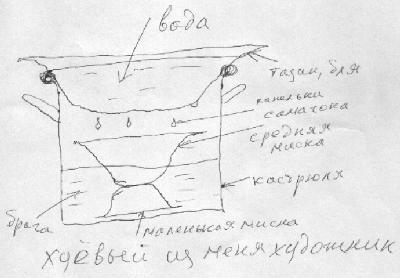 вода
тазик, бля
капельки
самагона
средняя
миска
кастрюля
брага
маленькая миска
хуёвый из меня художник